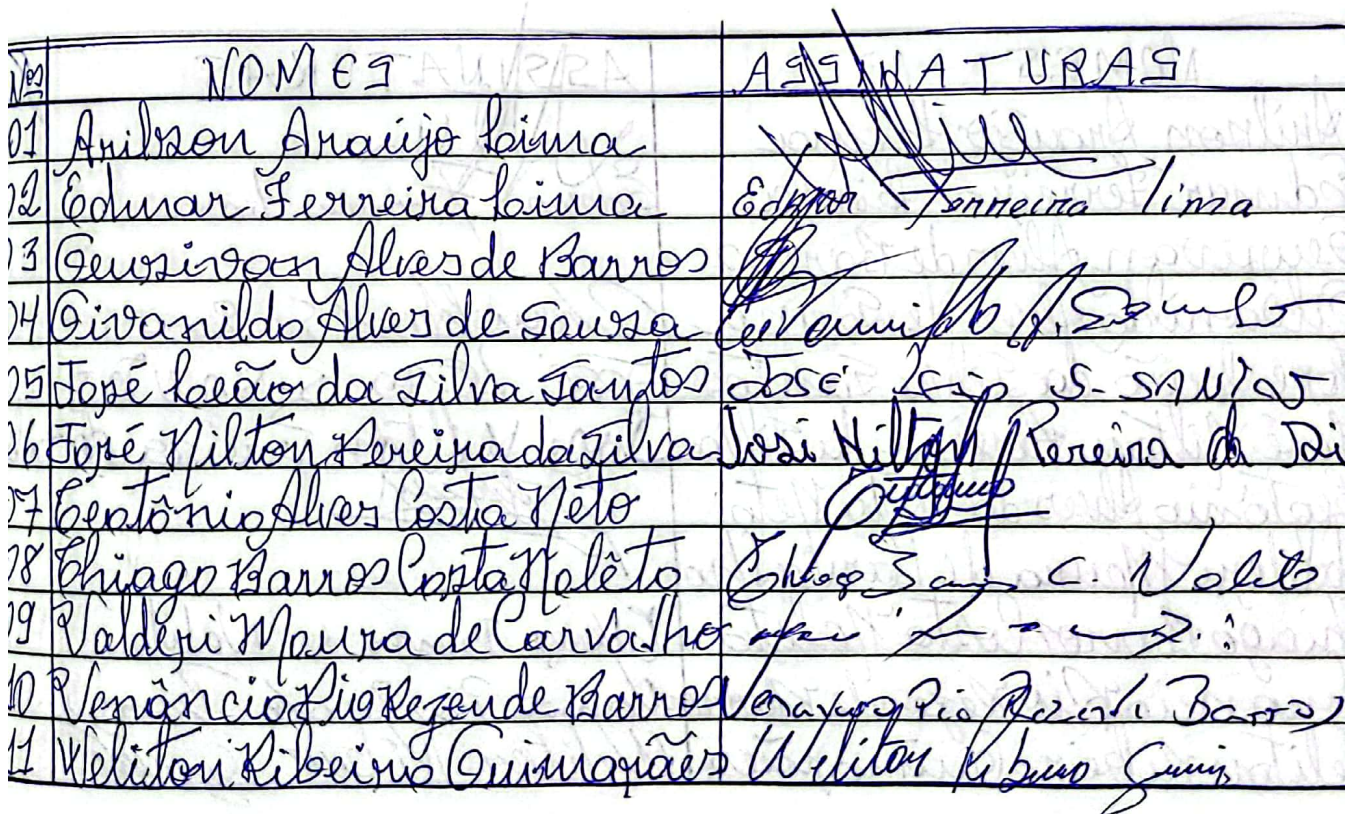 Nos NOMES ASSINATURAS
01 Arilson Araújo Lima
02 Edmar Ferreira Lima Edmar Ferreira lima
03 Geusivan Alves de Barros
04 Givanildo Alves de Sousa Givanildo A. Sousa
05 José Leão da Silva Santos José Leão S. SANTOS
06 José Nilton Pereira da Silva José Nilton Pereira da Si
07 Teotônio Alves Costa Neto
08 Thiago Barros Costa Nolêto Thiago C. Noleto
09 Valderi Moura de Carvalho
10 Venâncio Pio Rezende Barros Pio Barros
11 Weliton Ribeiro Guimarães Weliton Ribeiro